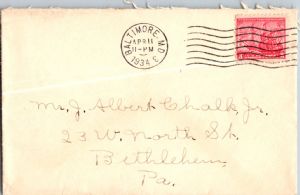 BALTIMORE, MD.
APR 11
11-PM
1934
Mr. J. Albert Chalk, Jr.
23 W. North St.
Bethlehem,
Pa.